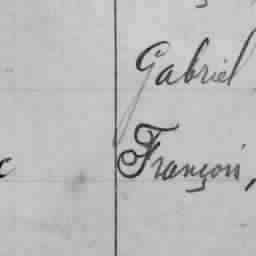 Gabriel
François,